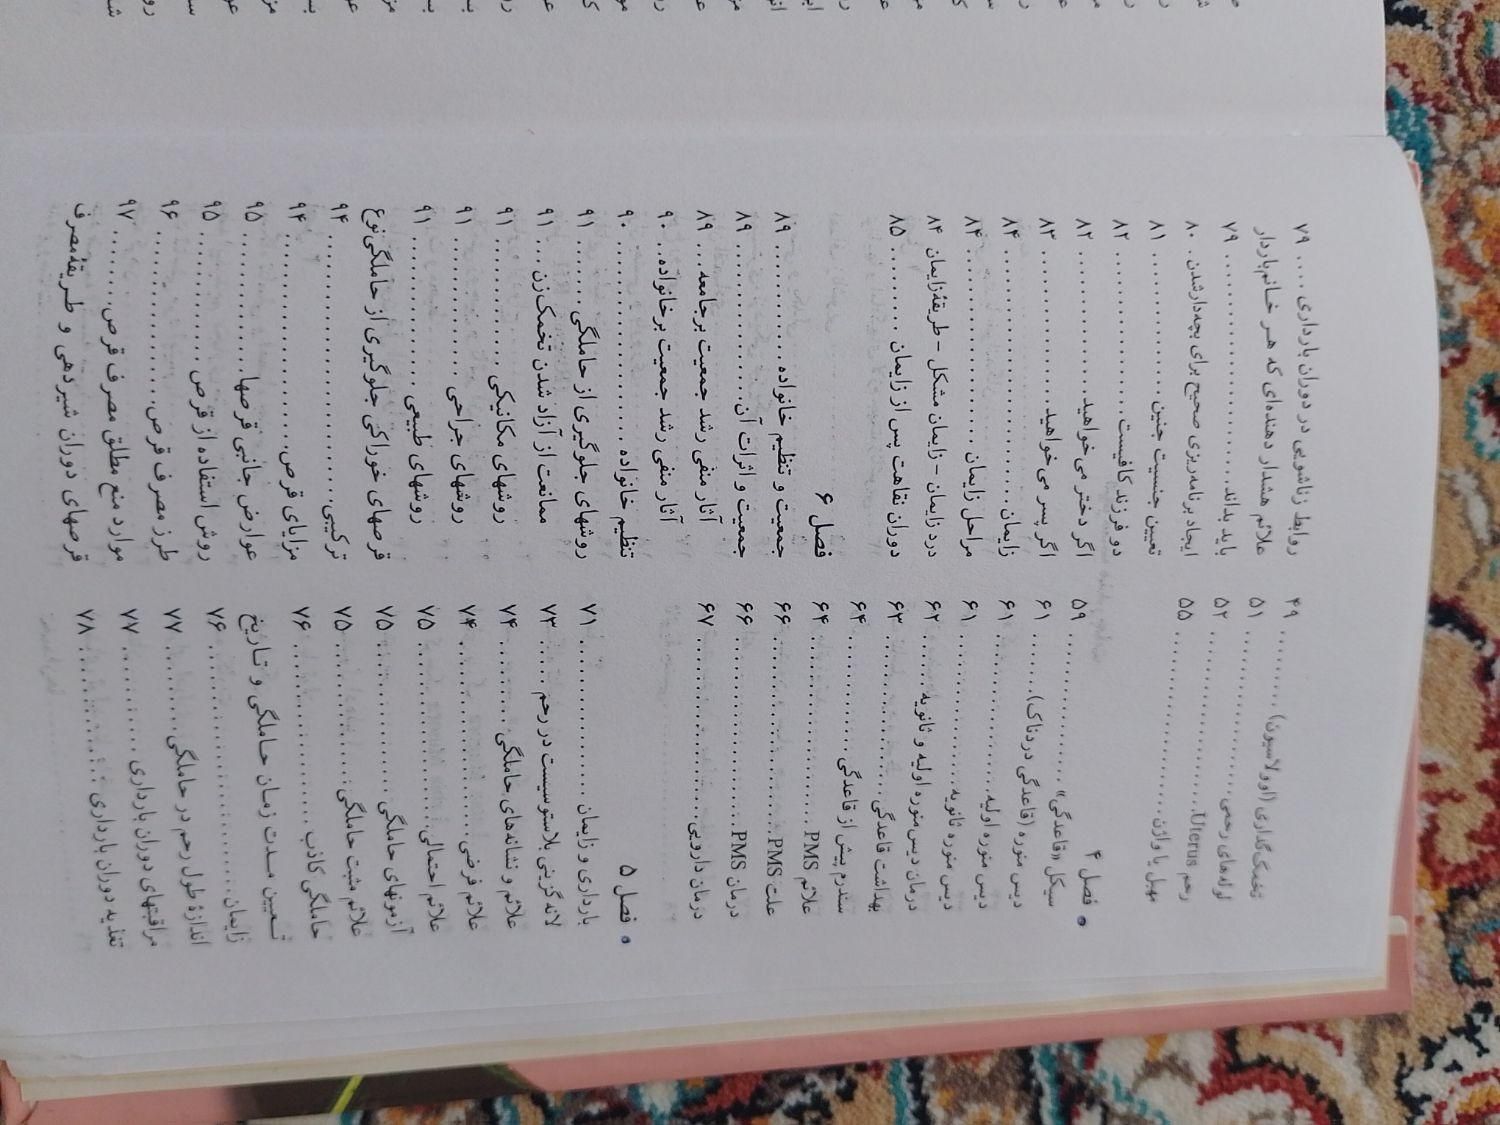 تخمک‌گذاری (اوولاسیون) . . . . . . . . . ۴۹
. . . . . . . . . . . . . . . . . . . . ۵۱
لوله‌های رحمی . . . . . . . . . . . . . . . . ۵۲
رحم Uterus . . . . . . . . . . . . . . . . . . ۵۵
مهبل یا واژن . . . . . . . . . . . . . . . .
• فصل ۴
سیکل «قاعدگی» . . . . . . . . . . . . . . . ۵۹
دیس منوره (قاعدگی دردناک) . . . . . . . ۶۱
دیس منوره اولیه . . . . . . . . . . . . . . . ۶۱
دیس منوره ثانویه . . . . . . . . . . . . . . . ۶۱
درمان دیس منوره اولیه و ثانویه . . . . . ۶۲
بهداشت قاعدگی . . . . . . . . . . . . . . . ۶۳
سندرم پیش از قاعدگی . . . . . . . . . . . ۶۴
علائم PMS . . . . . . . . . . . . . . . . . . ۶۴
علت PMS . . . . . . . . . . . . . . . . . . ۶۶
درمان PMS . . . . . . . . . . . . . . . . . ۶۶
درمان دارویی . . . . . . . . . . . . . . . . . ۶۷
• فصل ۵
بارداری و زایمان . . . . . . . . . . . . . . . ۷۱
لانه‌گزینی بلاستوسیست در رحم . . . . ۷۳
علائم و نشانه‌های حاملگی . . . . . . . . ۷۴
علائم فرضی . . . . . . . . . . . . . . . . . ۷۴
علائم احتمالی . . . . . . . . . . . . . . . . ۷۵
آزمونهای حاملگی . . . . . . . . . . . . . . ۷۵
علائم مثبت حاملگی . . . . . . . . . . . . ۷۵
حاملگی کاذب . . . . . . . . . . . . . . . . ۷۶
تـعیین مـدت زمـان حـاملگی و تـاریخ
زایمان . . . . . . . . . . . . . . . . . . . . . ۷۶
اندازهٔ طول رحم در حاملگی . . . . . . . ۷۷
مراقبتهای دوران بارداری . . . . . . . . . ۷۷
تغذیه دوران بارداری . . . . . . . . . . . . ۷۸
روابط زناشویی در دوران بارداری . . . . ۷۹
علائم هشدار دهنده‌ای که هـر خـانم‌باردار
باید بداند . . . . . . . . . . . . . . . . . . . ۷۹
ایجاد برنامه‌ریزی صحیح برای بچه‌دارشدن . ۸۰
تعیین جنسیت جنین . . . . . . . . . . . . ۸۱
دو فرزند کافیست . . . . . . . . . . . . . . ۸۲
اگر دختر می‌خواهید . . . . . . . . . . . . ۸۲
اگر پسر می‌خواهید . . . . . . . . . . . . . ۸۳
زایمان . . . . . . . . . . . . . . . . . . . . . ۸۴
مراحل زایمان . . . . . . . . . . . . . . . . ۸۴
درد زایمان - زایمان مشکل - طریقهٔ زایمان ۸۴
دوران نقاهت پس از زایمان . . . . . . . . ۸۵
فصل ۶
جمعیت و تنظیم خانواده . . . . . . . . . . ۸۹
جمعیت و اثرات آن . . . . . . . . . . . . . ۸۹
آثار منفی رشد جمعیت بر جامعه . . . ۸۹
آثار منفی رشد جمعیت بر خانواده . . ۹۰
تنظیم خانواده . . . . . . . . . . . . . . . . ۹۰
روشهای جلوگیری از حاملگی . . . . . . ۹۱
ممانعت از آزاد شدن تخمک زن . . . . ۹۱
روشهای مکانیکی . . . . . . . . . . . . . . ۹۱
روشهای جراحی . . . . . . . . . . . . . . . ۹۱
روشهای طبیعی . . . . . . . . . . . . . . . ۹۱
قرصهای خوراکی جلوگیری از حاملگی نوع
ترکیبی . . . . . . . . . . . . . . . . . . . . ۹۴
مزایای قرص . . . . . . . . . . . . . . . . . ۹۴
عوارض جانبی قرصها . . . . . . . . . . . ۹۵
روش استفاده از قرص . . . . . . . . . . . ۹۵
طرز مصرف قرص . . . . . . . . . . . . . . ۹۶
موارد منع مطلق مصرف قرص . . . . . . ۹۷
قرصهای دوران شیردهی و طـریقهٔ مصرف